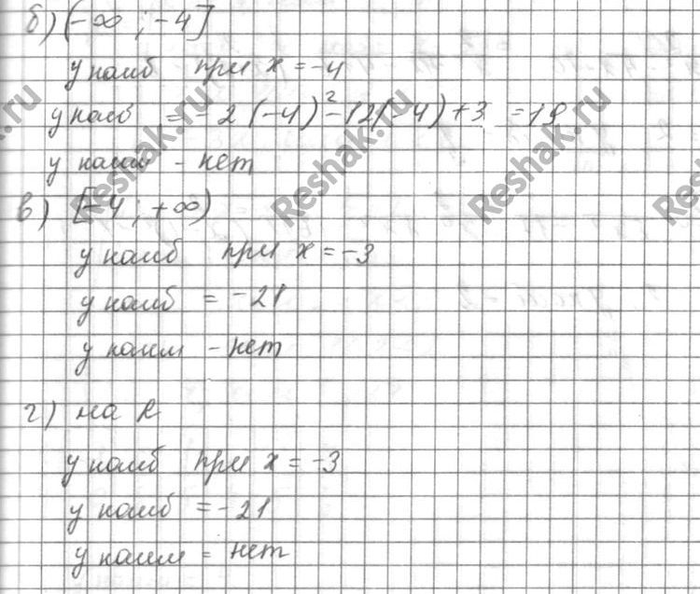 б) (-∞ ; -4]
у наиб при х = -4
у наиб = -2 (-4)² -12(-4) +3 = 19
у наим - нет
в) [-4 ; +∞)
у наиб при х = -3
у наиб = -21
у наим - нет
г) на R
у наиб при х = -3
у наиб = -21
у наим = нет
Reshak.ru
Reshak.ru
Reshak.ru